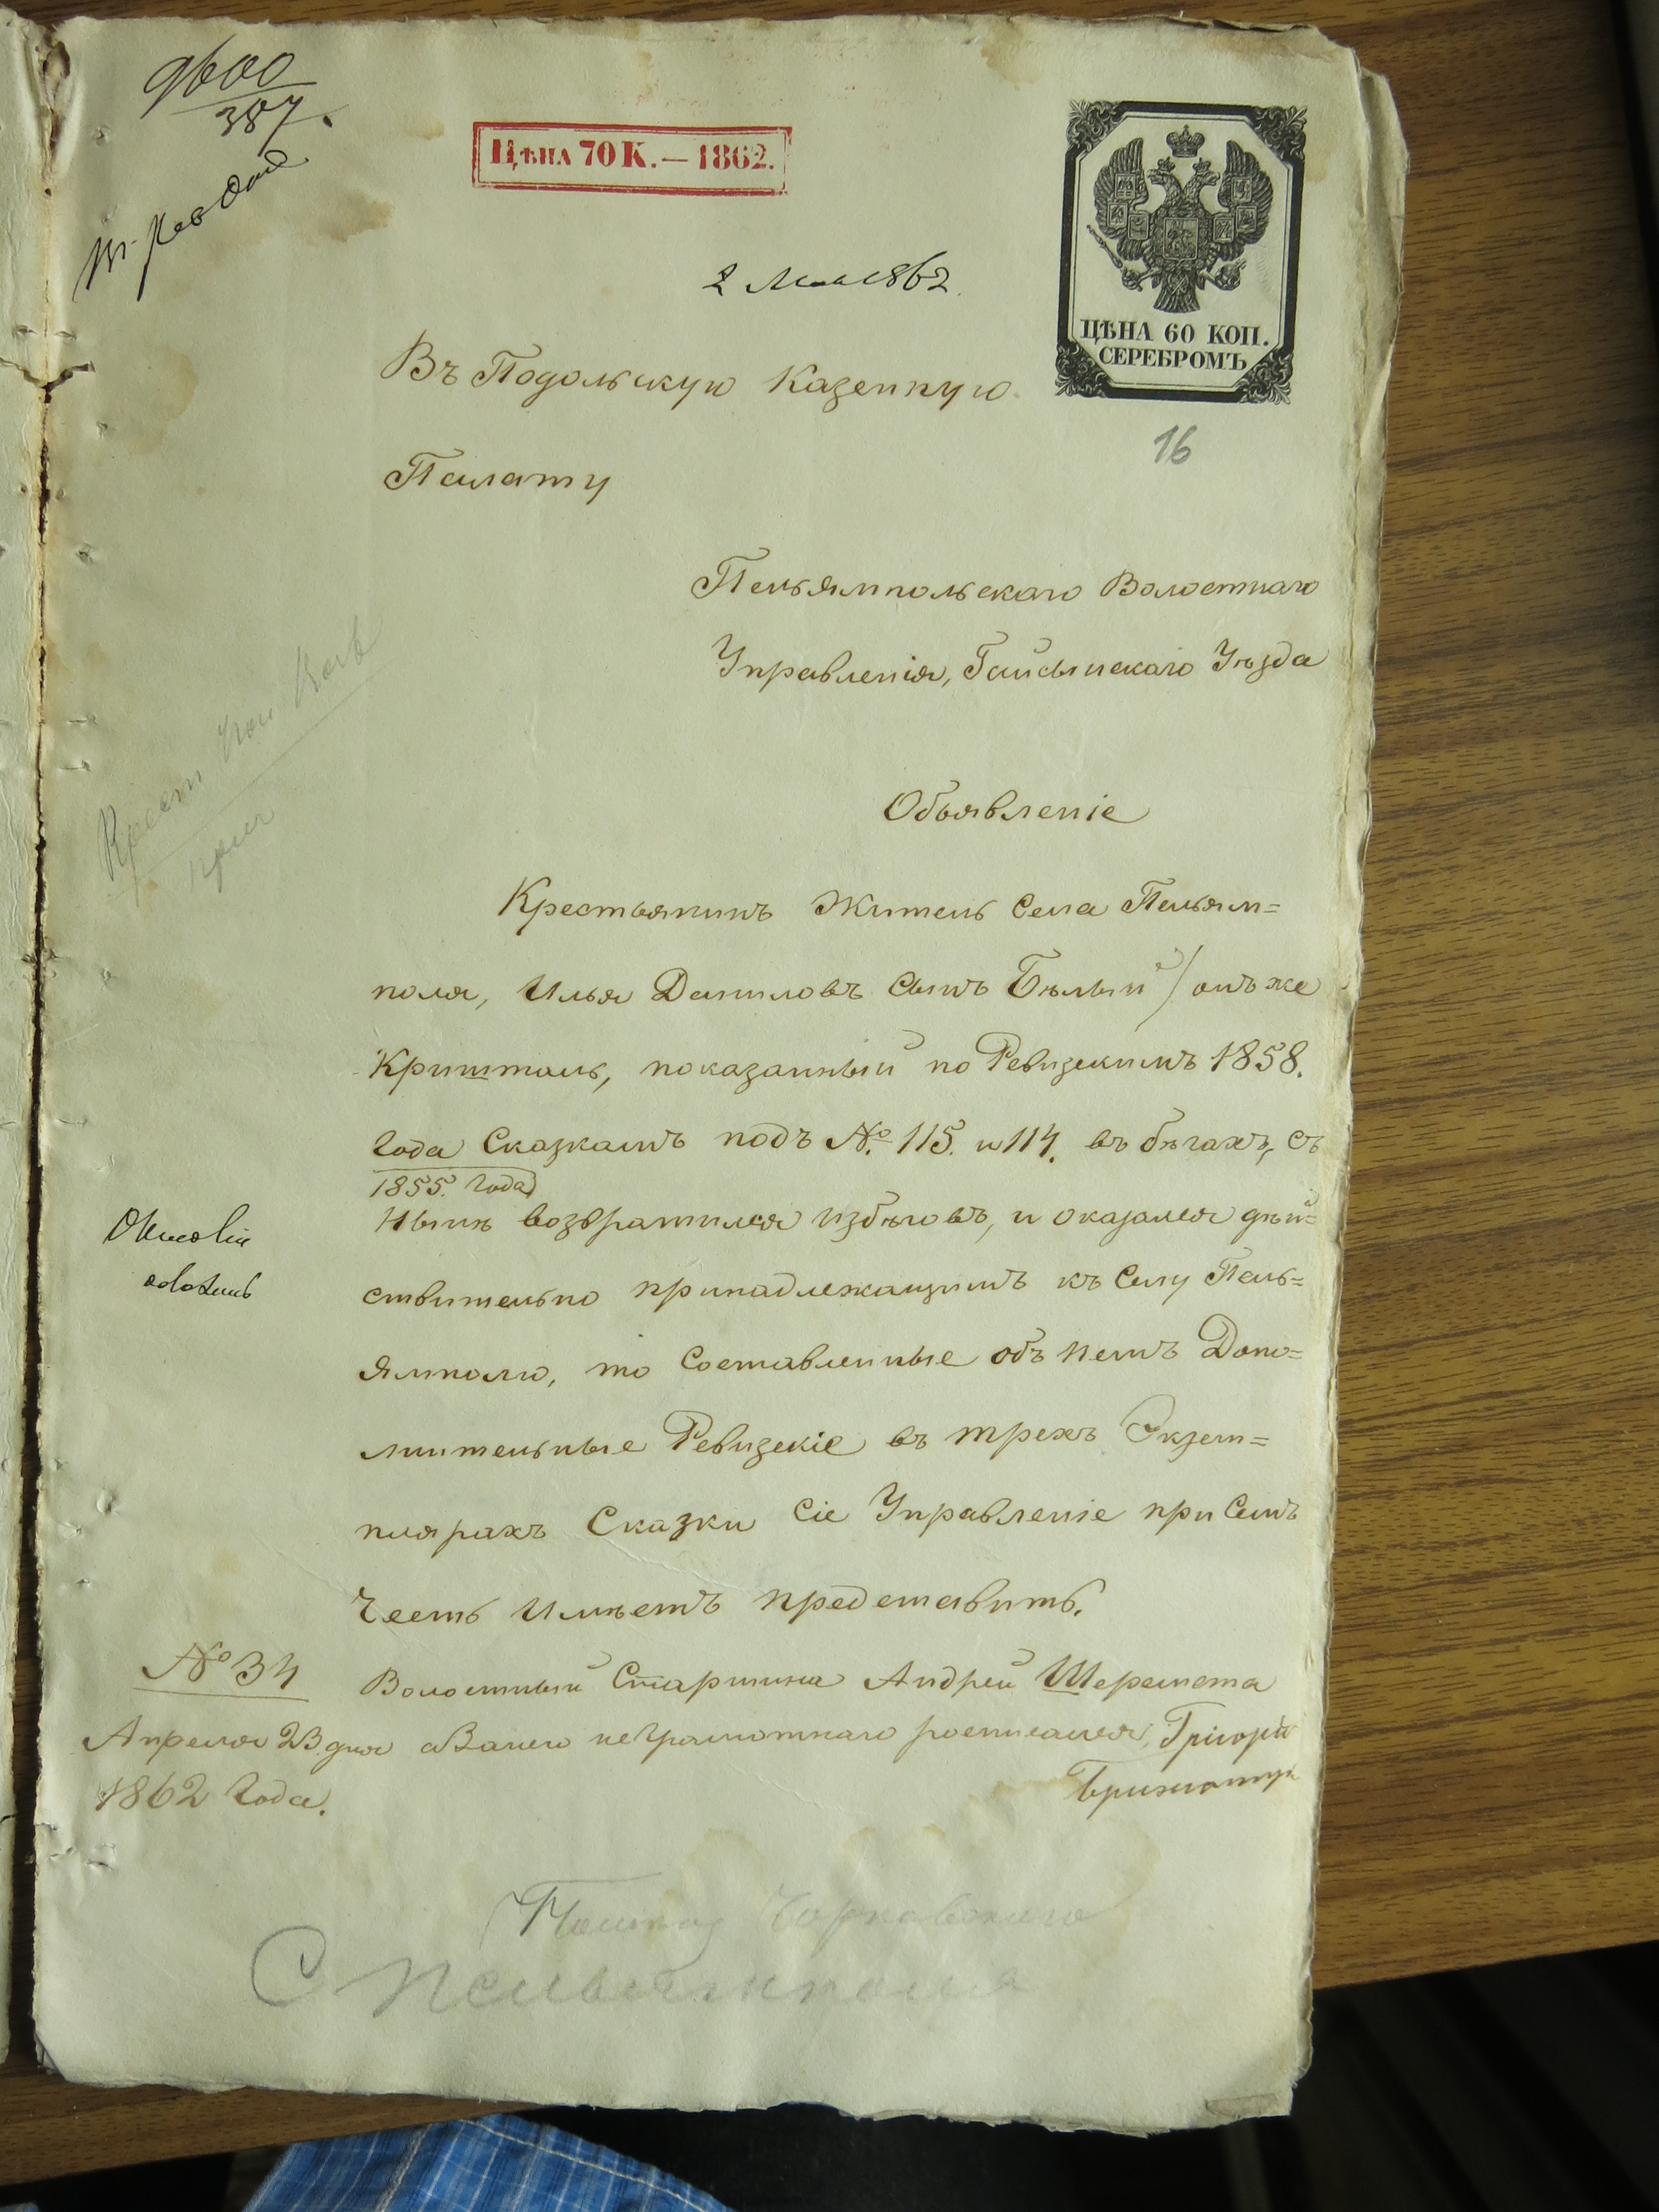 9600
387.
ЦѢНА 70 К. — 1862.
2 Мая 1862.
ЦѢНА 60 КОП.
СЕРЕБРОМЪ
16
Въ Подольскую Казенную
Палату
Пельямпольскаго Волостнаго
Управленія, Гайсынскаго Уѣзда
Объявленіе
Крестьянинъ Житель Села Пельям=
поля, Илья Даниловъ Сынъ Бѣлый / онъ же
Кришталь, показанный по Ревизскимъ 1858.
Года Сказкамъ подъ №. 115. и 114. въ бѣгахъ, съ
1855. Года)
Нынѣ возвратился избѣговъ, и оказался дѣй=
ствительно принадлежащимъ къ Селу Пель=
ямполю, то Составленные объ немъ Допо=
лнительные Ревизскіе въ трехъ Экзем=
плярахъ Сказки Сіе Управленіе при Семъ
Честь Имѣетъ представить.
№ 34
Волостный Старшина Андрей Шеремета
Апреля 23 дня
аВанего неграмотнаго росписался, Григорій
1862 Года.
С Пельямполя